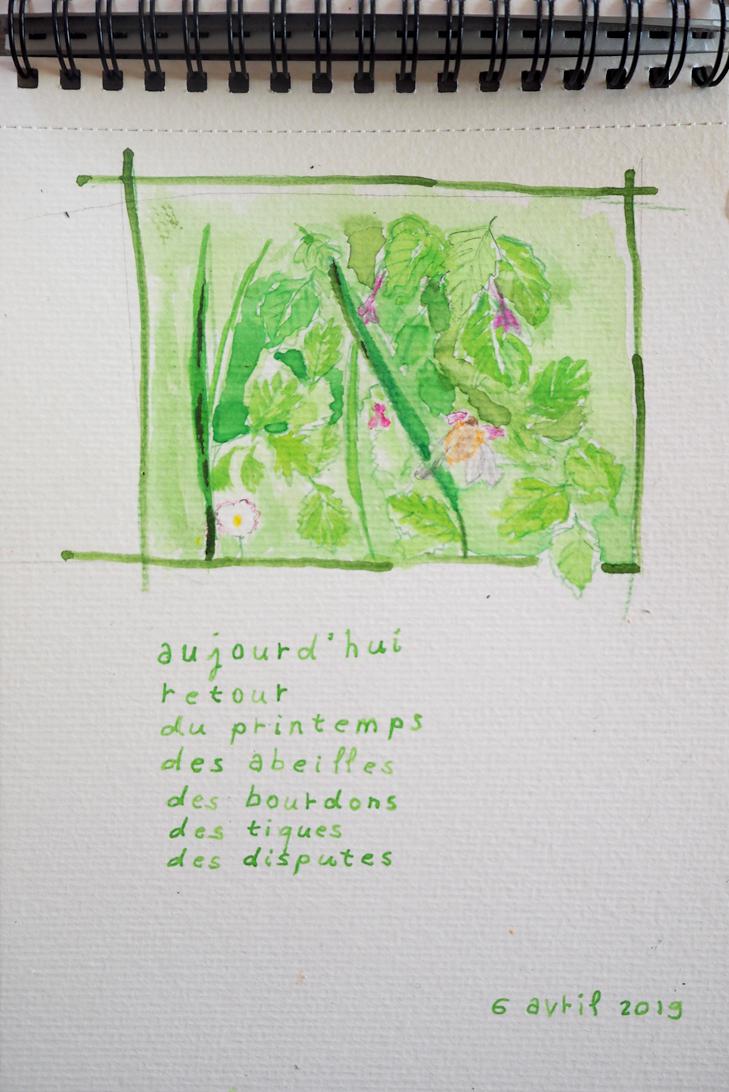 aujourd'hui
retour
du printemps
des abeilles
des bourdons
des tiques
des disputes
6 avril 2019